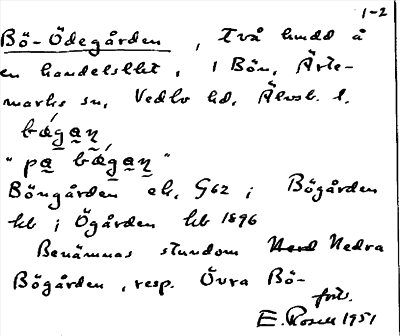 1-2
Bö-Ödegården, Två hmdd å
en handelslht, i Bön, Ärte-
marks sn, Vedbo hd, Älvsb. l.
bǽgan̥
"pa bǽgan̥"
Böngården ek, G62; Bögården
hb; Ögården hb 1896
Benämnas stundom Nedra
Bögården, resp. Övra Bö-
forts.
E. Rosell 1951